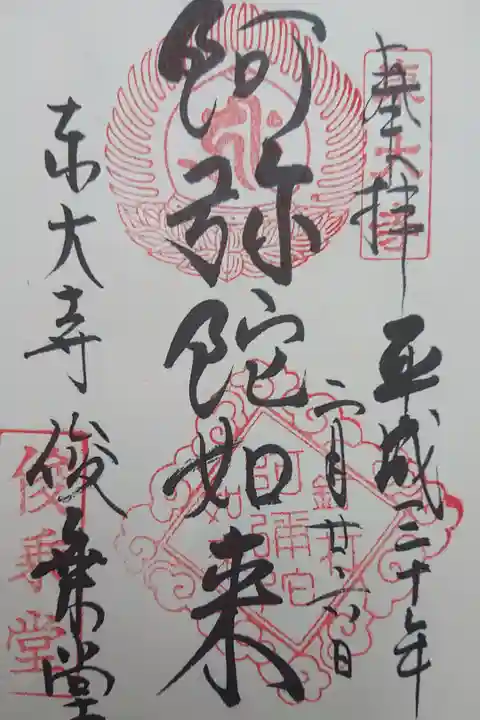 奉拝
平成三十年
二月廿六日
阿弥陀如来
東大寺
俊乗堂
東大寺
俊乗堂